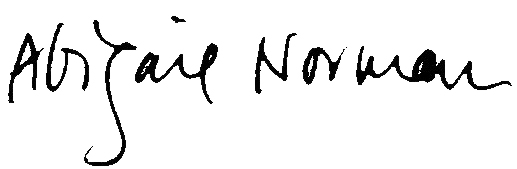 Abigail Norman